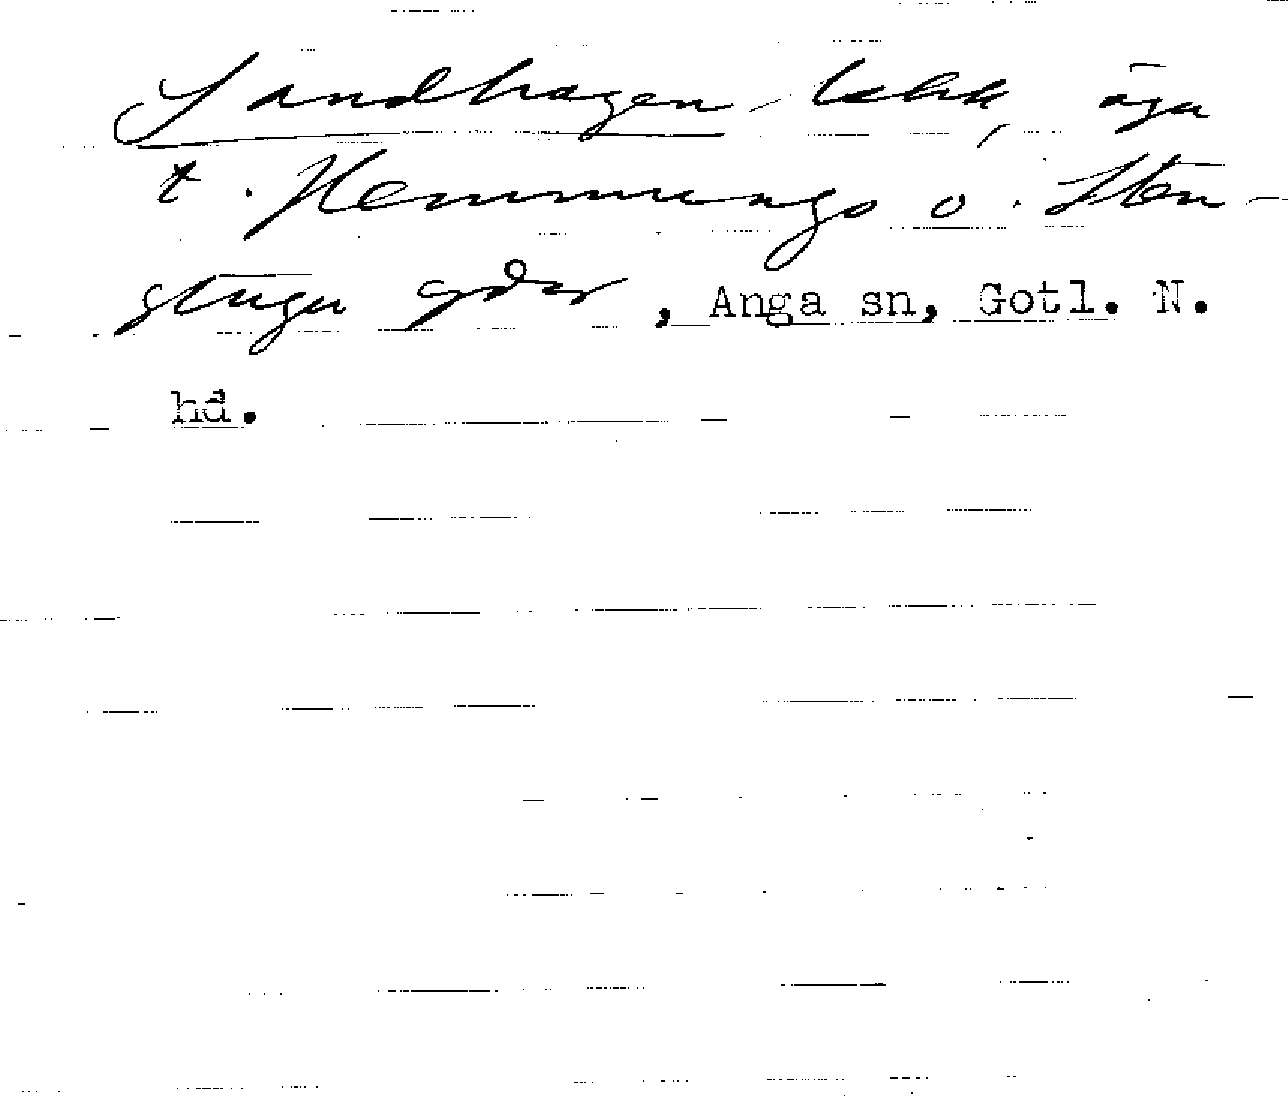 Sandhagen, täkt, ägu
t. Hemmungs o. Sten-
stugu gdar, Anga sn, Gotl. N.
hd.